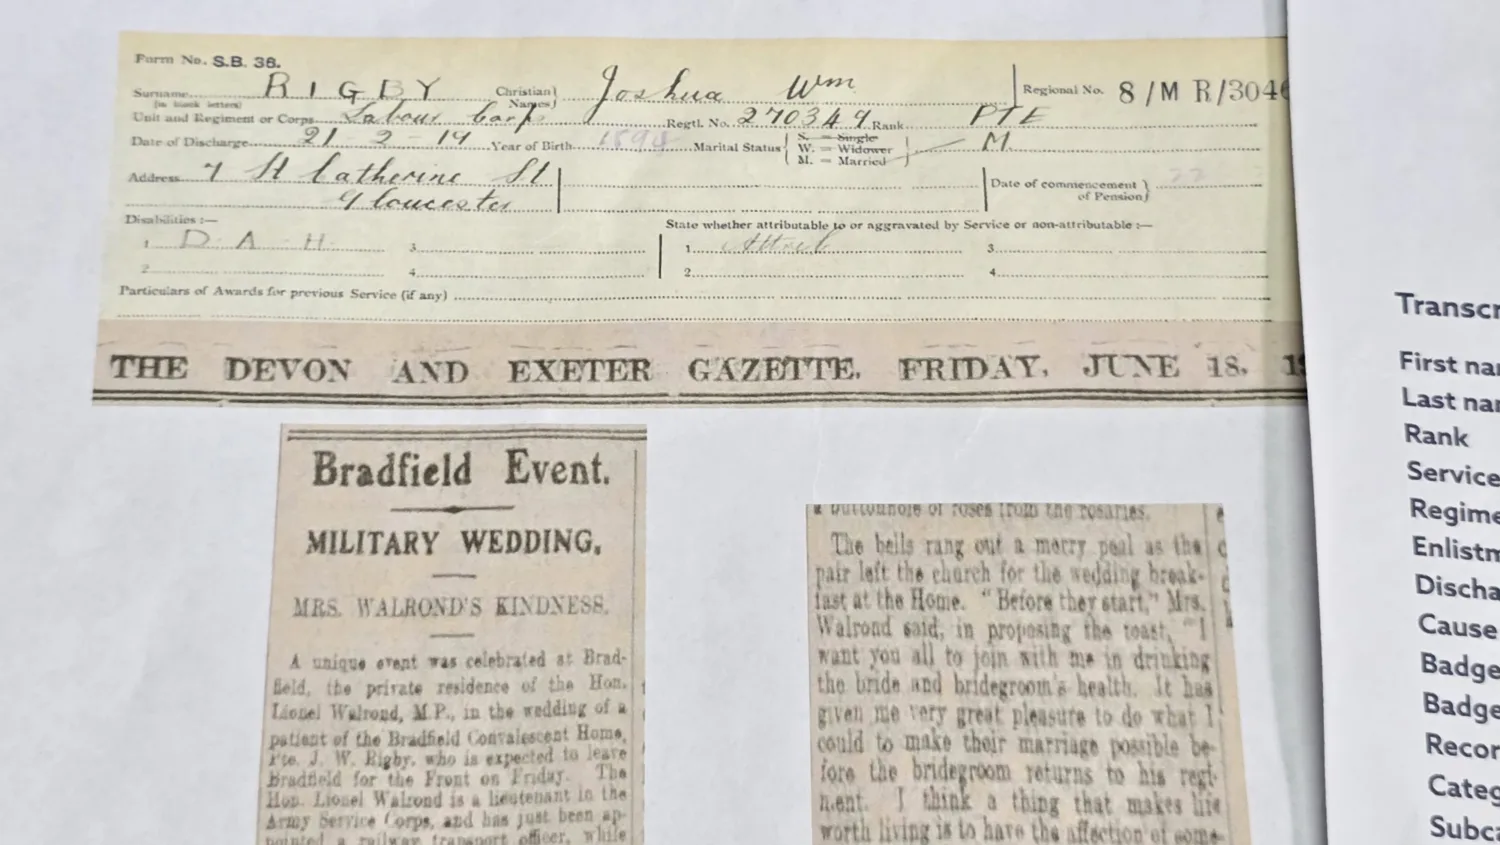 Form No. S.B. 36.
Surname RIGBY Christian Names} Joshua Wm Regional No. 8/MR/3046
(in block letters)
Unit and Regiment or Corps Labour Corps Regtl. No. 270349 Rank PTE
Date of Discharge 21-2-19 Year of Birth 1894 Marital Status { S. = Single W. = Widower M. = Married } M.
Address 7 St Catherine St
Gloucester
Date of commencement of Pension}
Disabilities :— State whether attributable to or aggravated by Service or non-attributable :—
1 D A H 3 1 3
2 4 2 4
Particulars of Awards for previous Service (if any)
THE DEVON AND EXETER GAZETTE, FRIDAY, JUNE 18,
Bradfield Event.
MILITARY WEDDING.
MRS. WALROND'S KINDNESS.
A unique event was celebrated at Brad-
field, the private residence of the Hon.
Lionel Walrond, M.P., in the wedding of a
patient of the Bradfield Convalescent Home,
Pte. J. W. Rigby, who is expected to leave
Bradfield for the Front on Friday. The
Hon. Lionel Walrond is a lieutenant in the
Army Service Corps, and has just been ap-
pointed a railway transport officer, while
buttonhole of roses from the rosaries.
The bells rang out a merry peal as the
pair left the church for the wedding break-
fast at the Home. "Before they start," Mrs.
Walrond said, in proposing the toast, "I
want you all to join with me in drinking
the bride and bridegroom's health. It has
given me very great pleasure to do what I
could to make their marriage possible be-
fore the bridegroom returns to his regi-
ment. I think a thing that makes life
worth living is to have the affection of some-
Transcr
First na
Last na
Rank
Service
Regime
Enlistm
Discha
Cause
Badge
Badge
Recor
Categ
Subca